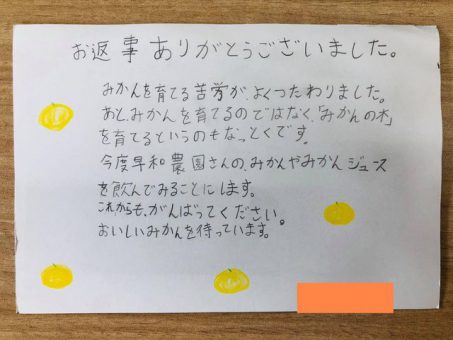 お返事ありがとうございました。
みかんを育てる苦労が、よくつたわりました。
あと、みかんを育てるのではなく、「みかんの木」
を育てるというのもなっとくです。
今度早和農園さんの、みかんやみかんジュース
を飲んでみることにします。
これからも、がんばってください。
おいしいみかんを待っています。